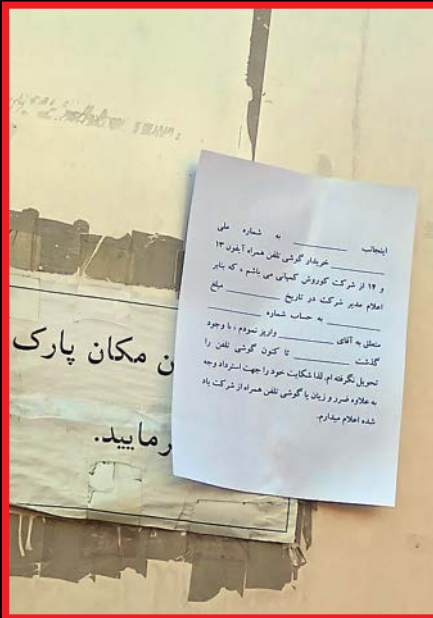 اینجانب __________ به شماره ملی
__________ خریدار گوشی تلفن همراه آیفون ۱۳
و ۱۴ از شرکت کوروش کمپانی می باشم ، که بنابر
اعلام مدیر شرکت در تاریخ __________ مبلغ
__________ به حساب شماره __________
متعلق به آقای __________ واریز نمودم ، با وجود
گذشت __________ تا کنون گوشی تلفن را
تحویل نگرفته ام. لذا شکایت خود را جهت استرداد وجه
به علاوه ضرر و زیان یا گوشی تلفن همراه از شرکت یاد
شده اعلام میدارم.
ن مکان پارک
رمایید.